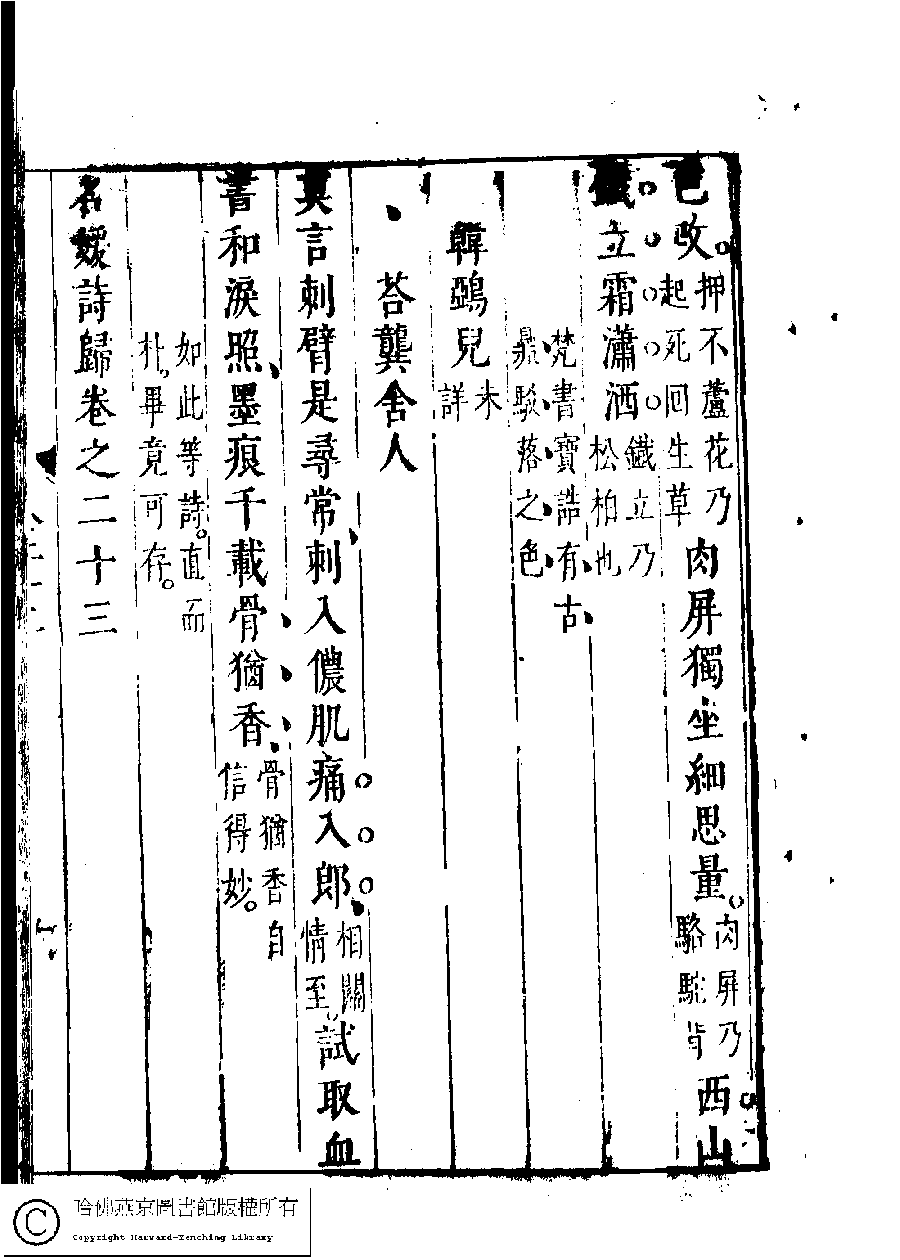 色改押不蘆花乃起死回生草肉屏獨坐細思量肉屏乃駱駝背西山
鐵立霜瀟洒鐵立乃松柏也
梵書寶誥有古
鼎駁落之色
韓鵐兒未詳
荅龔舍人
莫言刺臂是尋常刺入儂肌痛入郎相關情至試取血
書和淚照墨痕千載骨猶香骨猶香自信得妙
如此等詩直而
朴畢竟可存
名媛詩歸卷之二十三
哈佛燕京圖書館版權所有
Copyright Harvard-Yenching Library